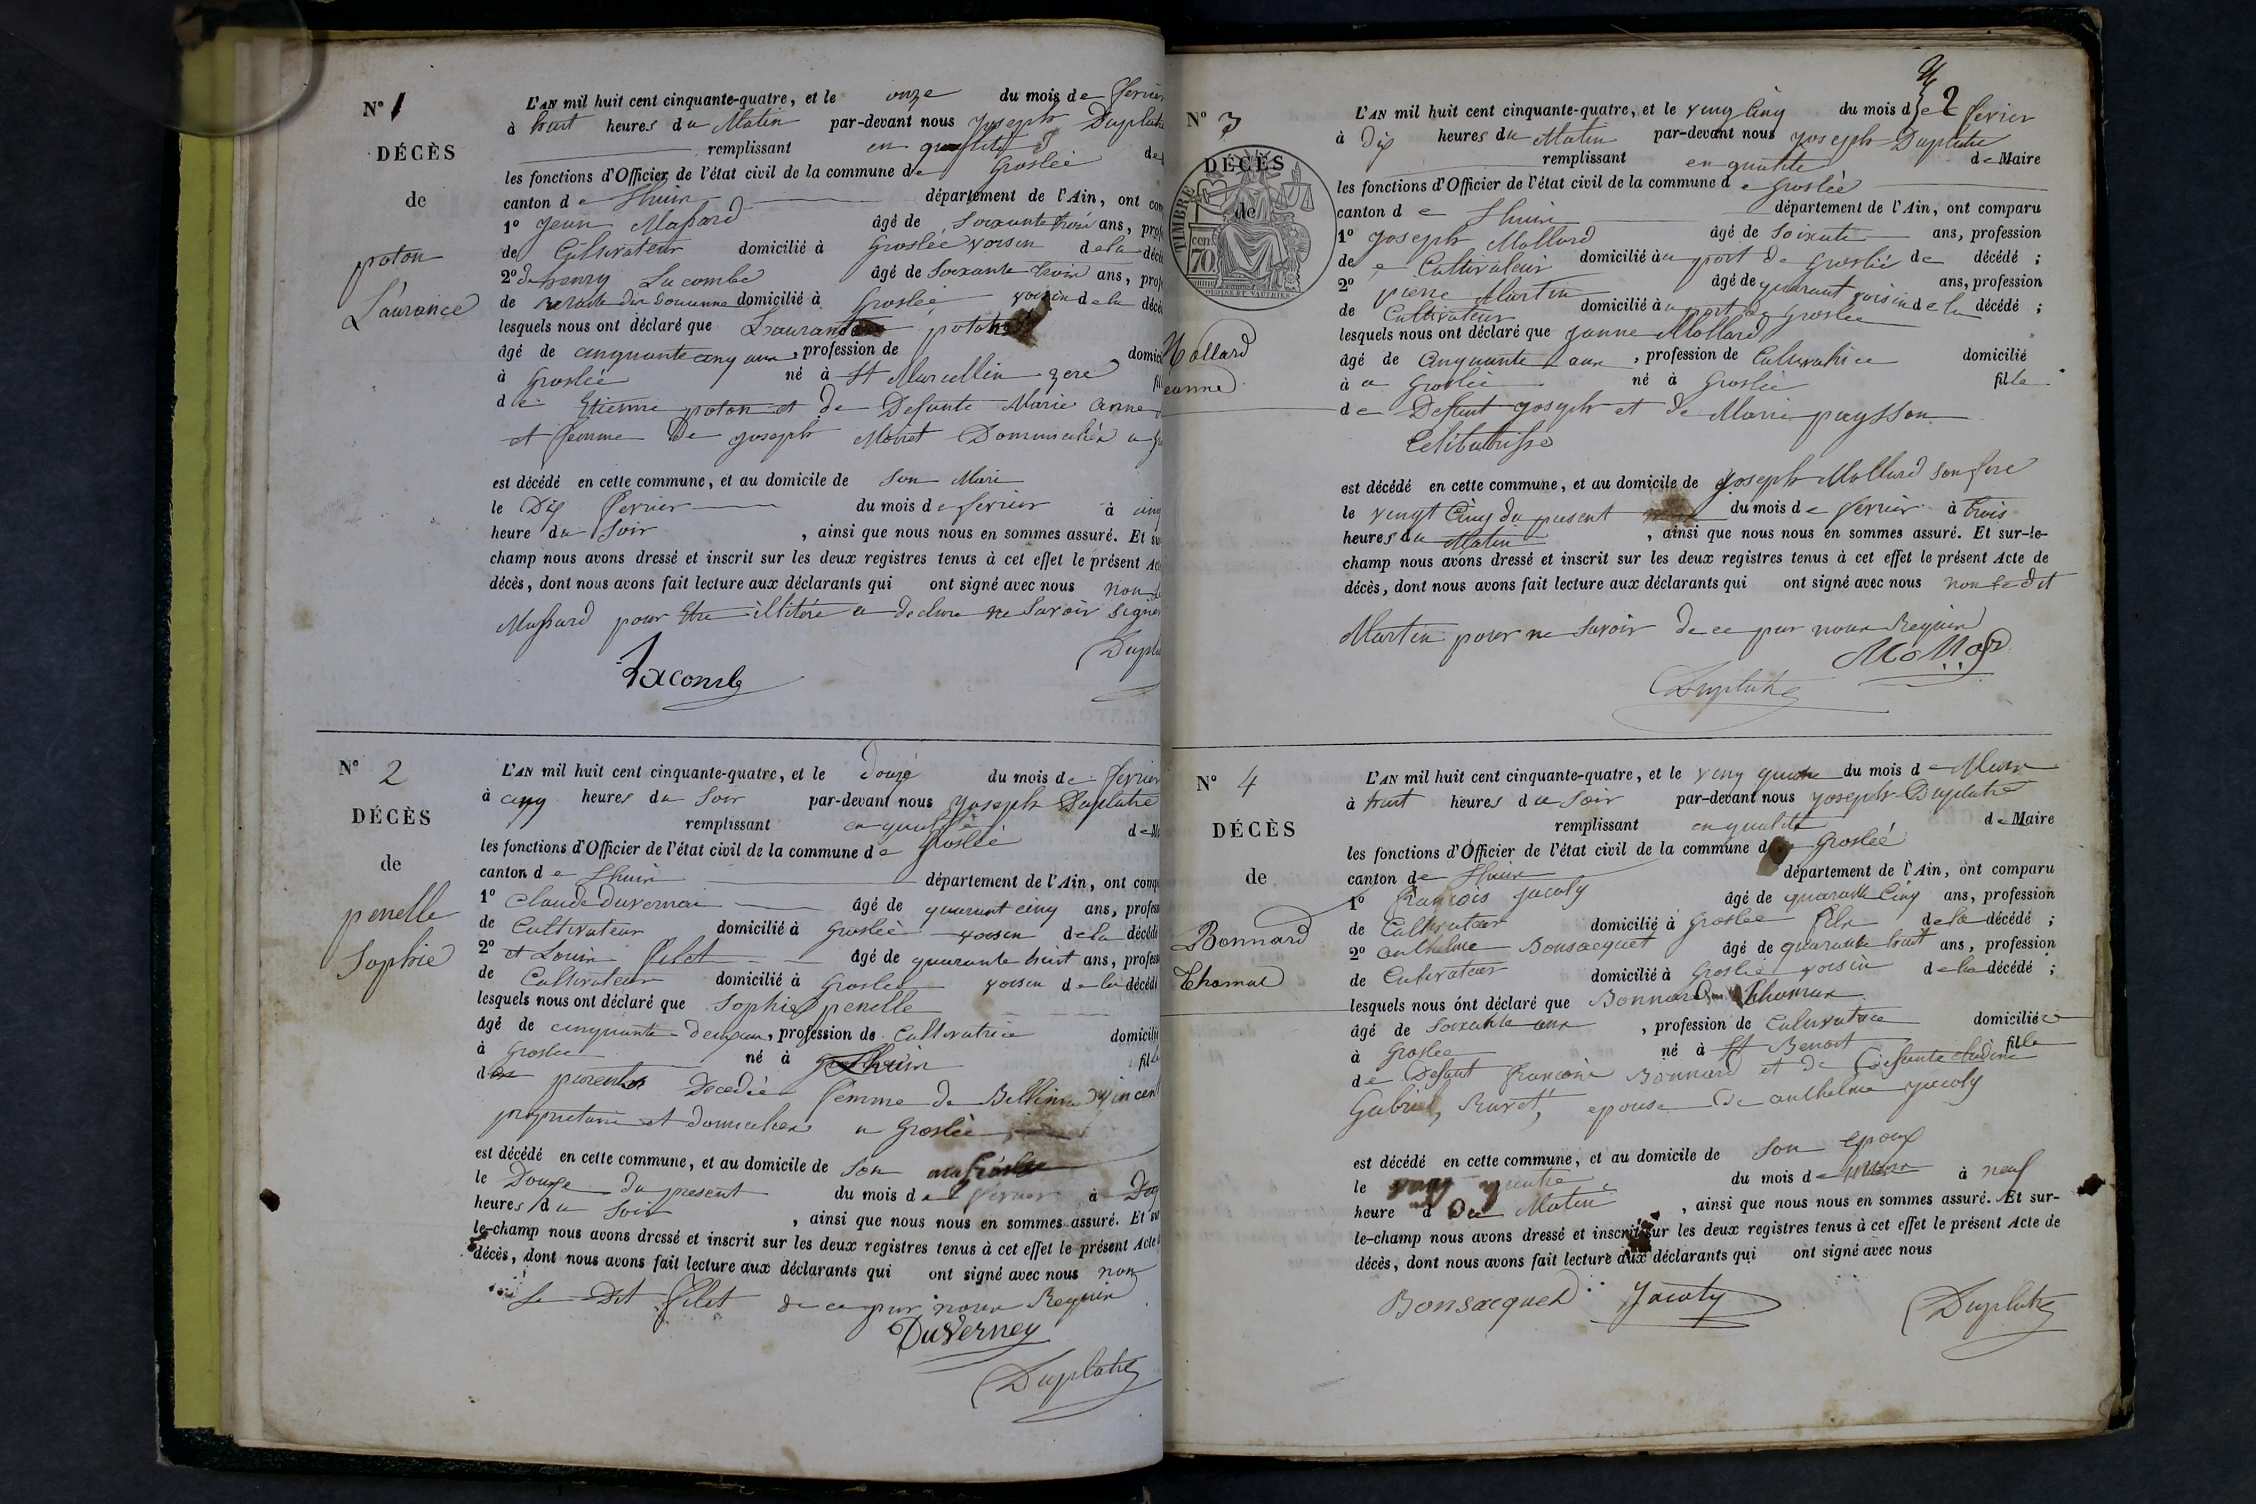 N° 1
DÉCÈS
de
poton
Laurance
L'AN mil huit cent cinquante-quatre, et le onze du mois de fevrier
à huit heures du Matin par-devant nous Joseph Duplatre
remplissant en qualité de
les fonctions d'Officier de l'état civil de la commune de Groslée
canton de Lhuis département de l'Ain, ont com
1° Jean Massard âgé de soixante trois ans, prof
de Cultivateur domicilié à Groslée voisin de la décé
2° de henry Lacombe âgé de soixante trois ans, prof
de Retraite des Douanne domicilié à Groslée voisin de la décé
lesquels nous ont déclaré que Laurance poton
âgé de cinquante cinq ans, profession de domici
à Groslée né à St Marcellin fil
de Etienne poton et de Defunte Marie anne
et femme de Joseph Moiret Domiciliés a
est décédé en cette commune, et au domicile de Son Mari
le Dix fevrier du mois de fevrier à cinq
heure du Soir , ainsi que nous nous en sommes assuré. Et su
champ nous avons dressé et inscrit sur les deux registres tenus à cet effet le présent Act
décès, dont nous avons fait lecture aux déclarants qui ont signé avec nous non
Massard pour Etre illitéré a declare ne Savoir Signer
Dupla
Lacombe
N° 2
DÉCÈS
de
penelle
Sophie
L'AN mil huit cent cinquante-quatre, et le Douze du mois de fevrier
à cinq heures du Soir par-devant nous Joseph Duplatre
remplissant en qualité de M
les fonctions d'Officier de l'état civil de la commune de Groslée
canton de Lhuis département de l'Ain, ont comp
1° Claude Duvernai âgé de quarant cinq ans, profess
de Cultivateur domicilié à Groslée voisin de la décédé
2° et Louis Pilet âgé de quarante huit ans, profess
de Cultivateur domicilié à Groslée voisin de la décédé
lesquels nous ont déclaré que Sophie penelle
âgé de cinquante Deux ans, profession de Cultivatrice domicilié
à Groslee né à Lhuis fille
de parents Decedée femme de Vincent
proprietaire et domicilies a Groslée
est décédé en cette commune, et au domicile de Son
le Douze du present du mois de fevrier à
heures du Soir , ainsi que nous nous en sommes assuré. Et sur
le-champ nous avons dressé et inscrit sur les deux registres tenus à cet effet le présent Acte
décès, dont nous avons fait lecture aux déclarants qui ont signé avec nous non
Le Dit Pilet de ce par nous Requis
DuVerney
Duplatre
2
N° 3
DÉCÈS
de
TIMBRE
70
Mollard
eanne
L'AN mil huit cent cinquante-quatre, et le vingt Cinq du mois de fevrier
à Dix heures du Matin par-devant nous Joseph Duplatre
remplissant en qualité de Maire
les fonctions d'Officier de l'état civil de la commune de Groslée
canton de Lhuis département de l'Ain, ont comparu
1° Joseph Mollard âgé de Soixante ans, profession
de Cultivateur domicilié au port de Groslée de décédé ;
2° pierre Martin âgé de quarant ans, profession
de Cultivateur domicilié au port de Groslee voisin de la décédé ;
lesquels nous ont déclaré que Janne Mollard
âgé de Cinquante ans , profession de Cultivatrice domicilié
à a Groslée né à Groslée fille
de Defunt Joseph et de Marie paysson
Celibatrisse
est décédé en cette commune, et au domicile de Joseph Mollard Son frere
le vengt Cinq du present du mois de fevrier à trois
heures du Matin , ainsi que nous nous en sommes assuré. Et sur-le-
champ nous avons dressé et inscrit sur les deux registres tenus à cet effet le présent Acte de
décès, dont nous avons fait lecture aux déclarants qui ont signé avec nous non le dit
Martin pour ne Savoir de ce par nous Requis
Mollard
Duplatre
N° 4
DÉCÈS
de
Bonnard
Thomas
L'AN mil huit cent cinquante-quatre, et le vingt quatre du mois de Mars
à huit heures du Soir par-devant nous Joseph Duplatre
remplissant en qualité de Maire
les fonctions d'Officier de l'état civil de la commune de Groslée
canton de Lhuis département de l'Ain, ont comparu
1° François Jacoly âgé de quarante Cinq ans, profession
de Cultivateur domicilié à Groslee fils de la décédé ;
2° anthelme Bonsacquet âgé de quarante huit ans, profession
de Cultivateur domicilié à Groslee voisin de la décédé ;
lesquels nous ont déclaré que Bonnard Thomas
âgé de Soixante ans , profession de Cultivatrice domicilié
à Groslee né à St Benoit fille
de Defunt francois Bonnard et de Defunte
Gabriel, Ruret, epouse de anthelme Jacoly
est décédé en cette commune, et au domicile de Son Epoux
le vingt quatre du mois de mars à neuf
heure du Matin , ainsi que nous nous en sommes assuré. Et sur-
le-champ nous avons dressé et inscrit sur les deux registres tenus à cet effet le présent Acte de
décès, dont nous avons fait lecture aux déclarants qui ont signé avec nous
Bonsacquet Jacoly Duplatre